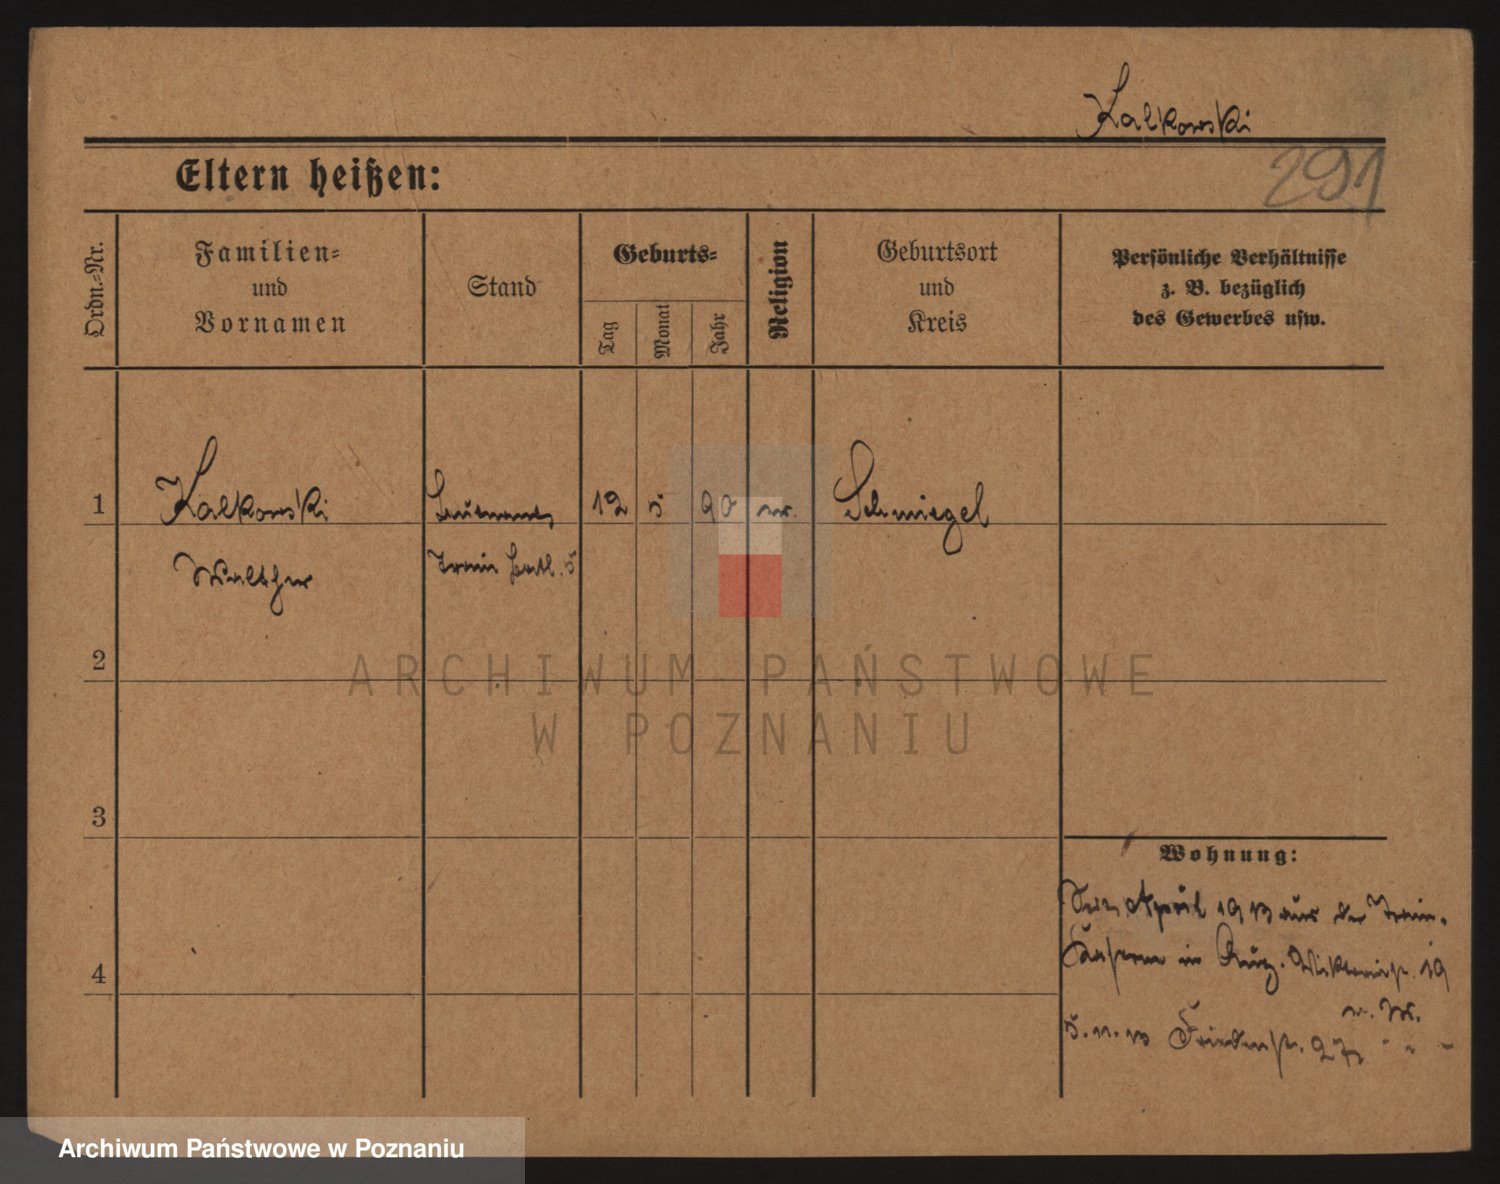 Kalkowski
291
Eltern heißen:
Ordn.-Nr.
Familien-
und
Vornamen
Stand
Geburts-
Tag
Monat
Jahr
Religion
Geburtsort
und
Kreis
Persönliche Verhältnisse
z. B. bezüglich
des Gewerbes usw.
1
Kalkowski
Leutnant
12
5
90
Schmiegel
Walther
Train Batl. 5
2
ARCHIWUM PAŃSTWOWE
W POZNANIU
3
Wohnung:
April 1913 aus der Train-
Kaserne in 19
4
5. 11. 13 Friedenstr. 27
Archiwum Państwowe w Poznaniu